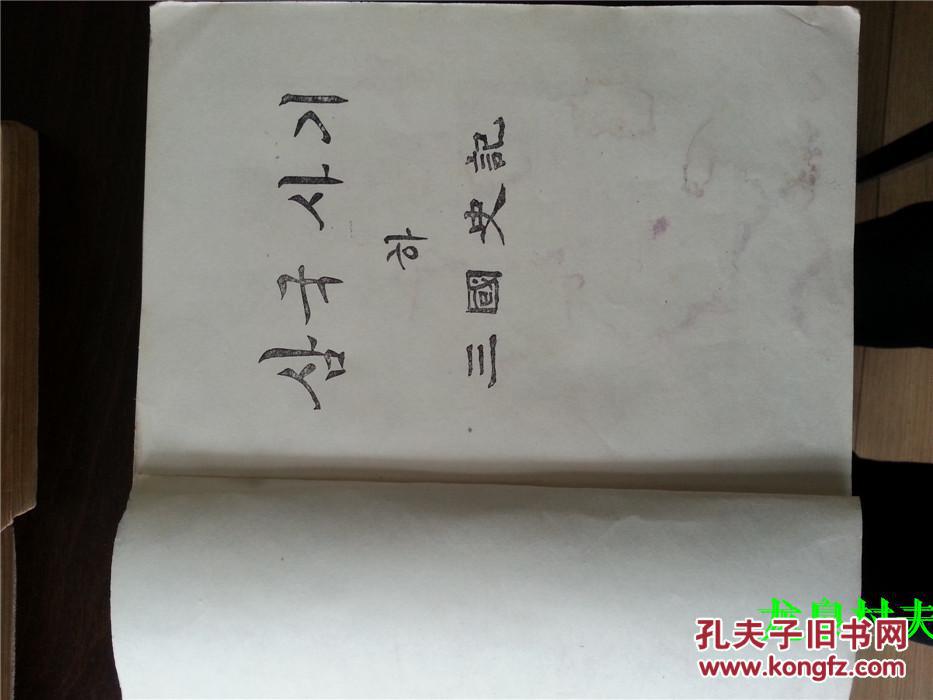 삼국사기
하
三國史記
龙泉村夫
孔夫子旧书网
www.kongfz.com